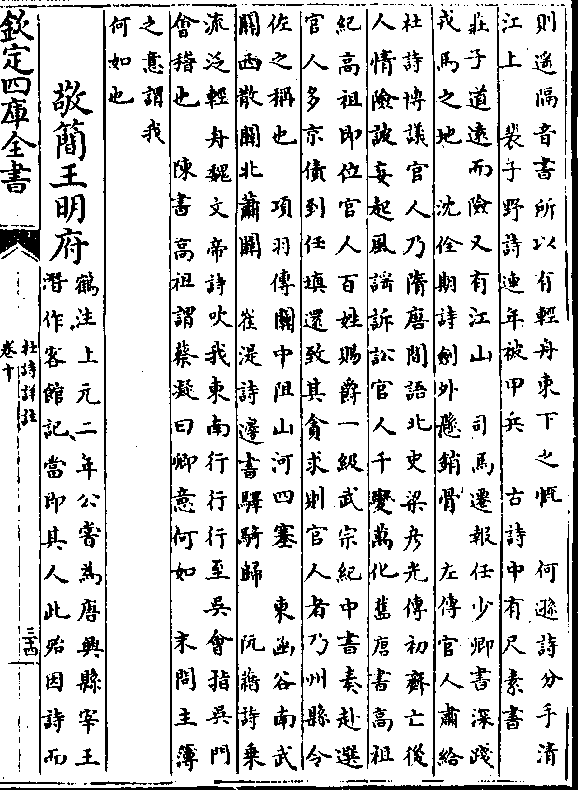 則遙隔音書所以有輕舟東下之慨　何遜詩分手清
江上　裴子野詩連年被甲兵　古詩中有尺素書
莊子道遠而險又有江山　司馬遷報任少卿書深踐
戎馬之地　沈佺期詩劍外懸銷骨　左傳官人肅給
杜詩博議官人乃隋唐間語北史梁彦光傳初齊亡後
人情險詖妄起風謡訴訟官人千變萬化舊唐書高祖
紀高祖即位官人百姓賜爵一級武宗紀中書奏赴選
官人多京債到任填還致其貪求則官人者乃州縣令
佐之稱也　項羽傳關中阻山河四塞　東函谷南武
關西散關北蕭關　崔湜詩邊書驛騎歸　阮籍詩乗
流泛輕舟魏文帝詩吹我東南行行行至吳會指吳門
會稽也　陳書高祖謂蔡凝曰卿意何如　末問主簿
之意謂我
何如也
敬簡王明府
鶴注上元二年公嘗為唐興縣宰王
潛作客館記當即其人此殆因詩而
欽定四庫全書
杜詩詳註
卷十
三古